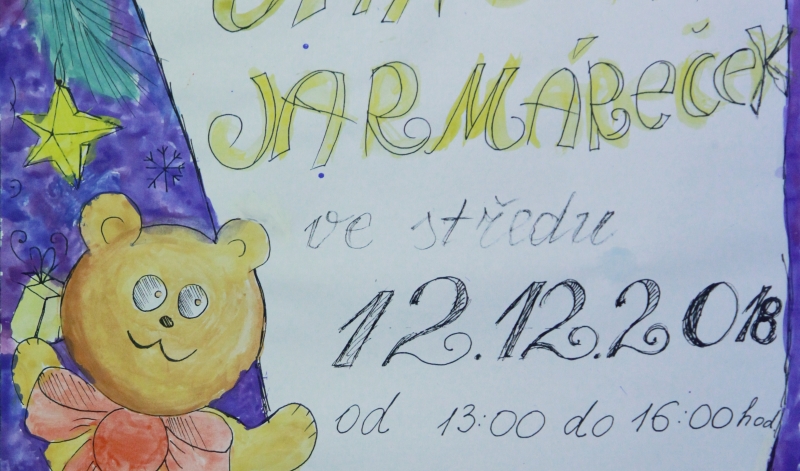 JARMÁREČEK
ve středu
12.12.2018
od 13:00 do 16:00 hod